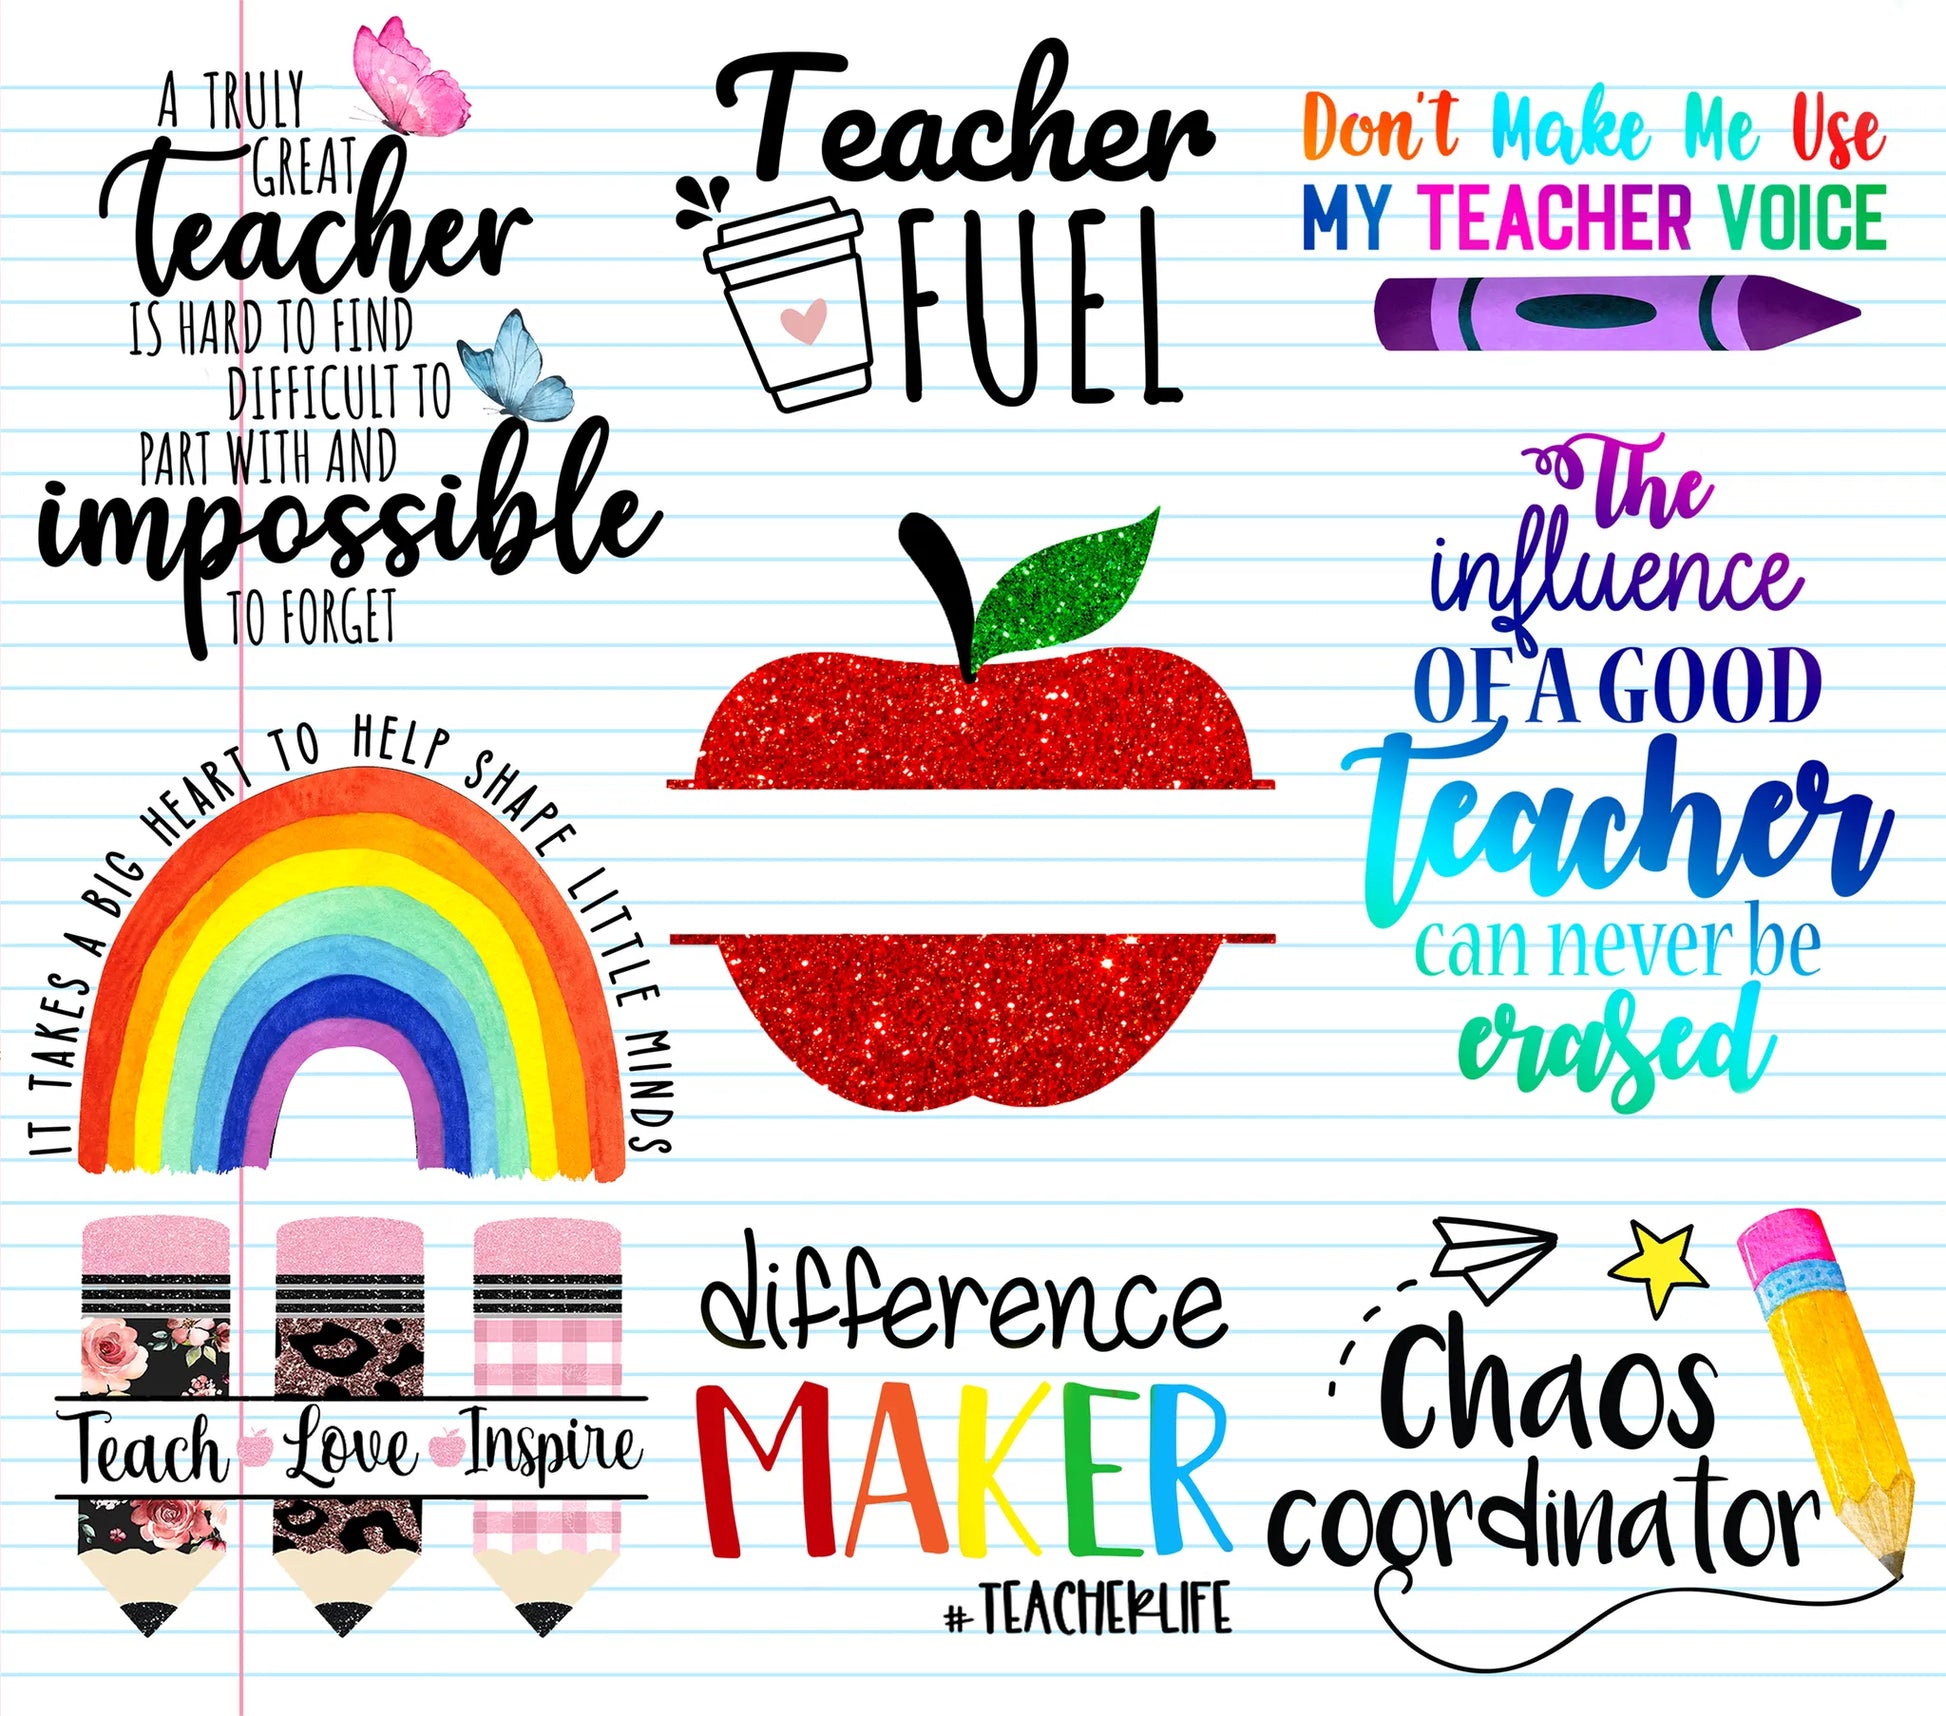 A TRULY
GREAT
Teacher
IS HARD TO FIND
DIFFICULT TO
PART WITH AND
impossible
TO FORGET
Teacher
FUEL
Don't Make Me Use
MY TEACHER VOICE
The
influence
OF A GOOD
Teacher
can never be
erased
IT TAKES A BIG HEART TO HELP SHAPE LITTLE MINDS
Teach Love Inspire
difference
MAKER
#TEACHERLIFE
Chaos
coordinator